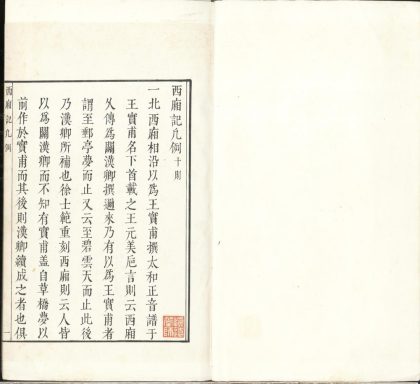 西廂記凡例十則
一北西廂相沿以為王實甫撰太和正音譜于
王實甫名下首載之王元美卮言則云西廂
久傳為關漢卿撰邇來乃有以為王實甫者
謂至郵亭夢而止又云至碧雲天而止此後
乃漢卿所補也徐士範重刻西廂則云人皆
以為關漢卿而不知有實甫蓋自草橋夢以
前作於實甫而其後則漢卿續成之者也俱
西廂記凡例
一